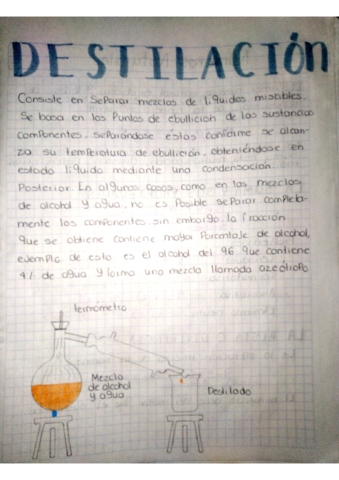 DESTILACIÓN
Consiste en separar mezclas de liquidos miscibles.
Se basa en los Puntos de ebullición de las sustancias
componentes, separándose estas conforme se alcan-
za su temperatura de ebullición, obteniéndose en
estado liquido mediante una condensación
Posterior. En algunos casos, como en las mezclas
de alcohol y agua, no es Posible separar completa-
mente los componentes, sin embargo la fracción
que se obtiene contiene mayor Porcentaje de alcohol,
ejemplo de esto es el alcohol del 96 que contiene
4% de agua y forma una mezcla llamada azeótropo
termómetro
Mezcla
de alcohol
y agua
Destilado